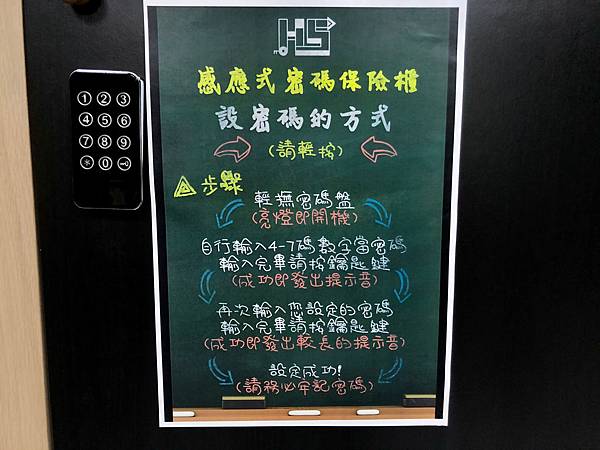 HLS
感應式密碼保險櫃
設密碼的方式
(請輕按)
步驟
輕撫密碼盤
(亮燈即開機)
自行輸入4-7碼數字當密碼
輸入完畢請按鑰匙鍵
(成功即發出提示音)
再次輸入您設定的密碼
輸入完畢請按鑰匙鍵
(成功即發出較長的提示音)
設定成功!
(請務必牢記密碼)
1 2 3
4 5 6
7 8 9
* 0